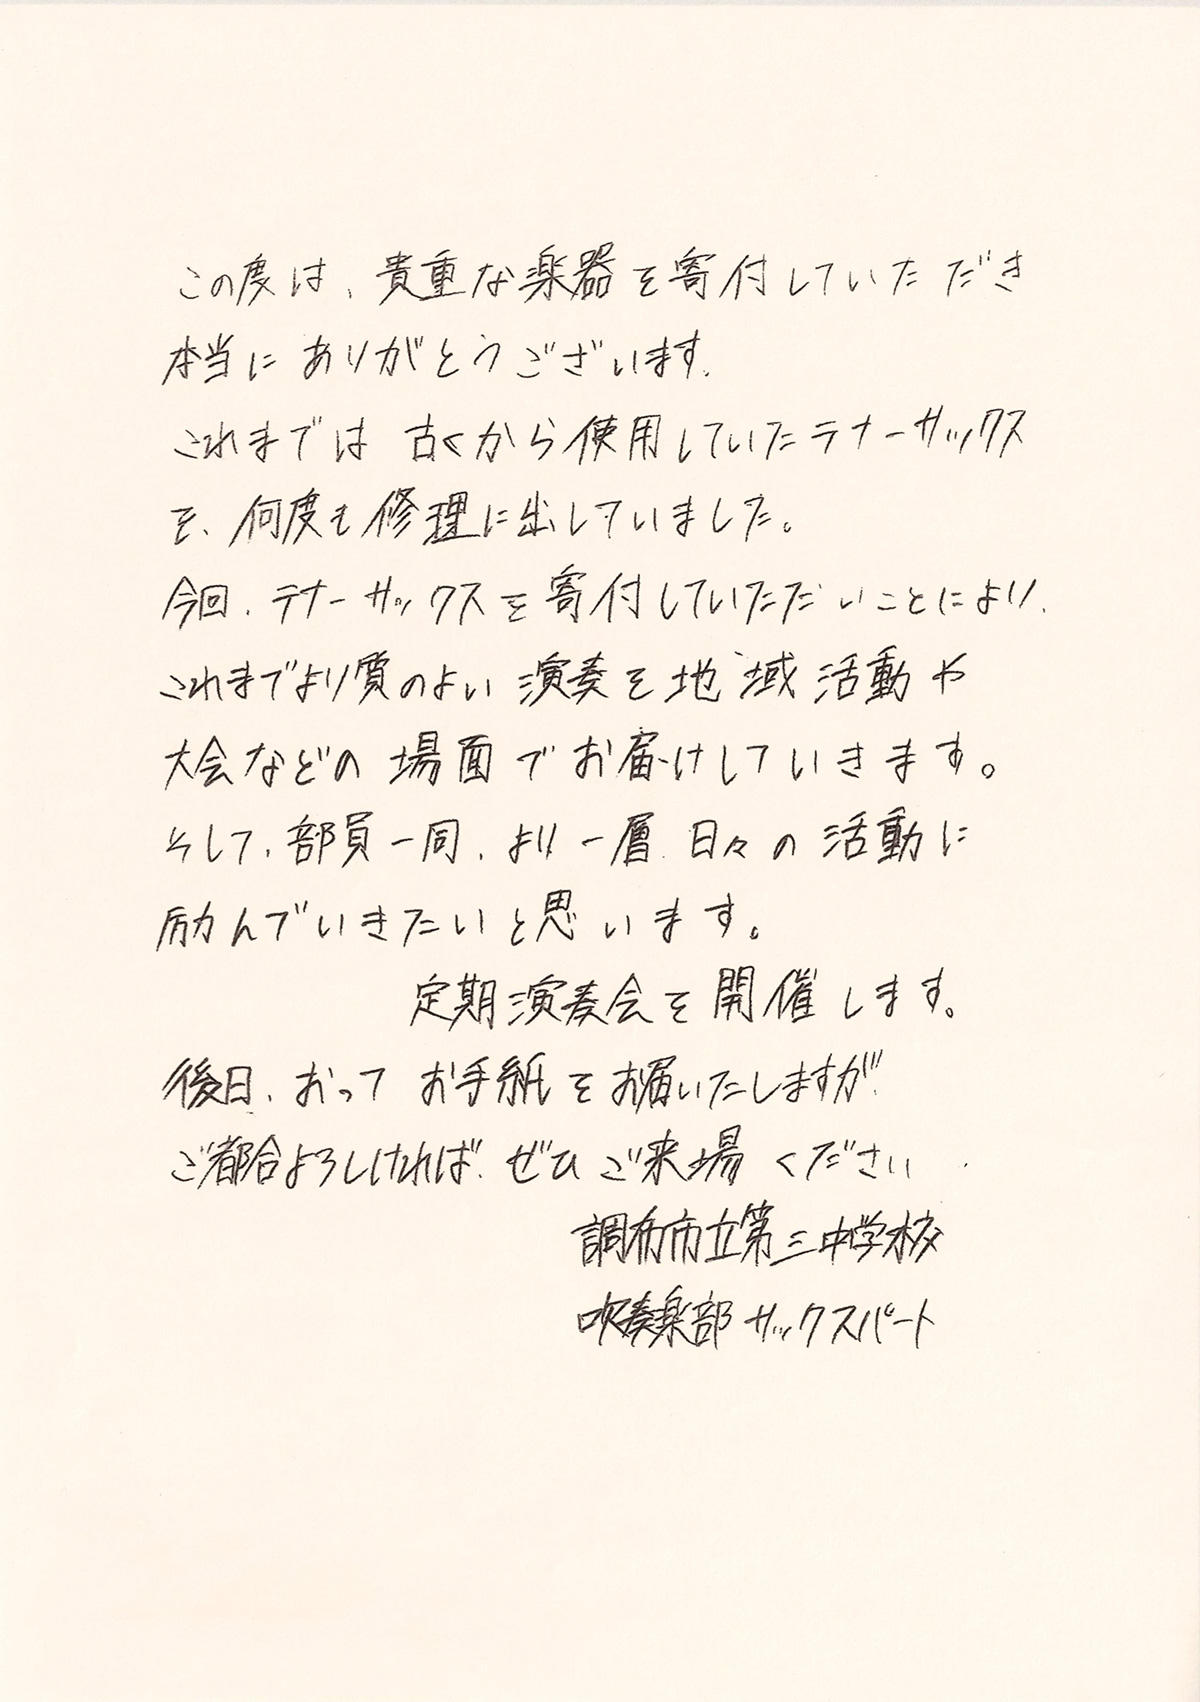 この度は、貴重な楽器を寄付していただき
本当にありがとうございます。
これまでは古くから使用していたテナーサックス
を、何度も修理に出していました。
今回、テナーサックスを寄付していただいことにより、
これまでより質のよい演奏を地域活動や
大会などの場面でお届けしていきます。
そして、部員一同、より一層、日々の活動に
励んでいきたいと思います。
定期演奏会を開催します。
後日、おってお手紙をお届いたしますが、
ご都合よろしければ、ぜひご来場ください
調布市立第三中学校
吹奏楽部サックスパート